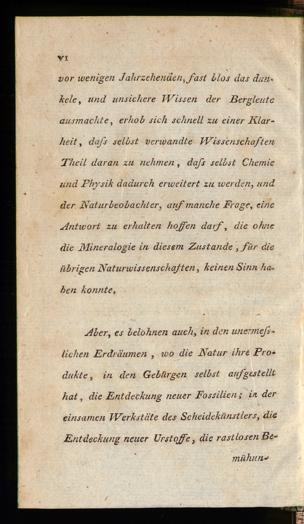 VI
vor wenigen Jahrzehenden, fast blos das dun-
kele, und unsichere Wissen der Bergleute
ausmachte, erhob sich schnell zu einer Klar-
heit, daſs selbst verwandte Wissenschaften
Theil daran zu nehmen, daſs selbst Chemie
und Physik dadurch erweitert zu werden, und
der Naturbeobachter, auf manche Frage, eine
Antwort zu erhalten hoffen darf, die ohne
die Mineralogie in diesem Zustande, für die
übrigen Naturwissenschaften, keinen Sinn ha-
ben konnte.
Aber, es belohnen auch, in den unermeſs-
lichen Erdräumen, wo die Natur ihre Pro-
dukte, in den Gebürgen selbst aufgestellt
hat, die Entdeckung neuer Fossilien; in der
einsamen Werkstäte des Scheidekünstlers, die
Entdeckung neuer Urstoffe, die rastlosen Be-
mühun-